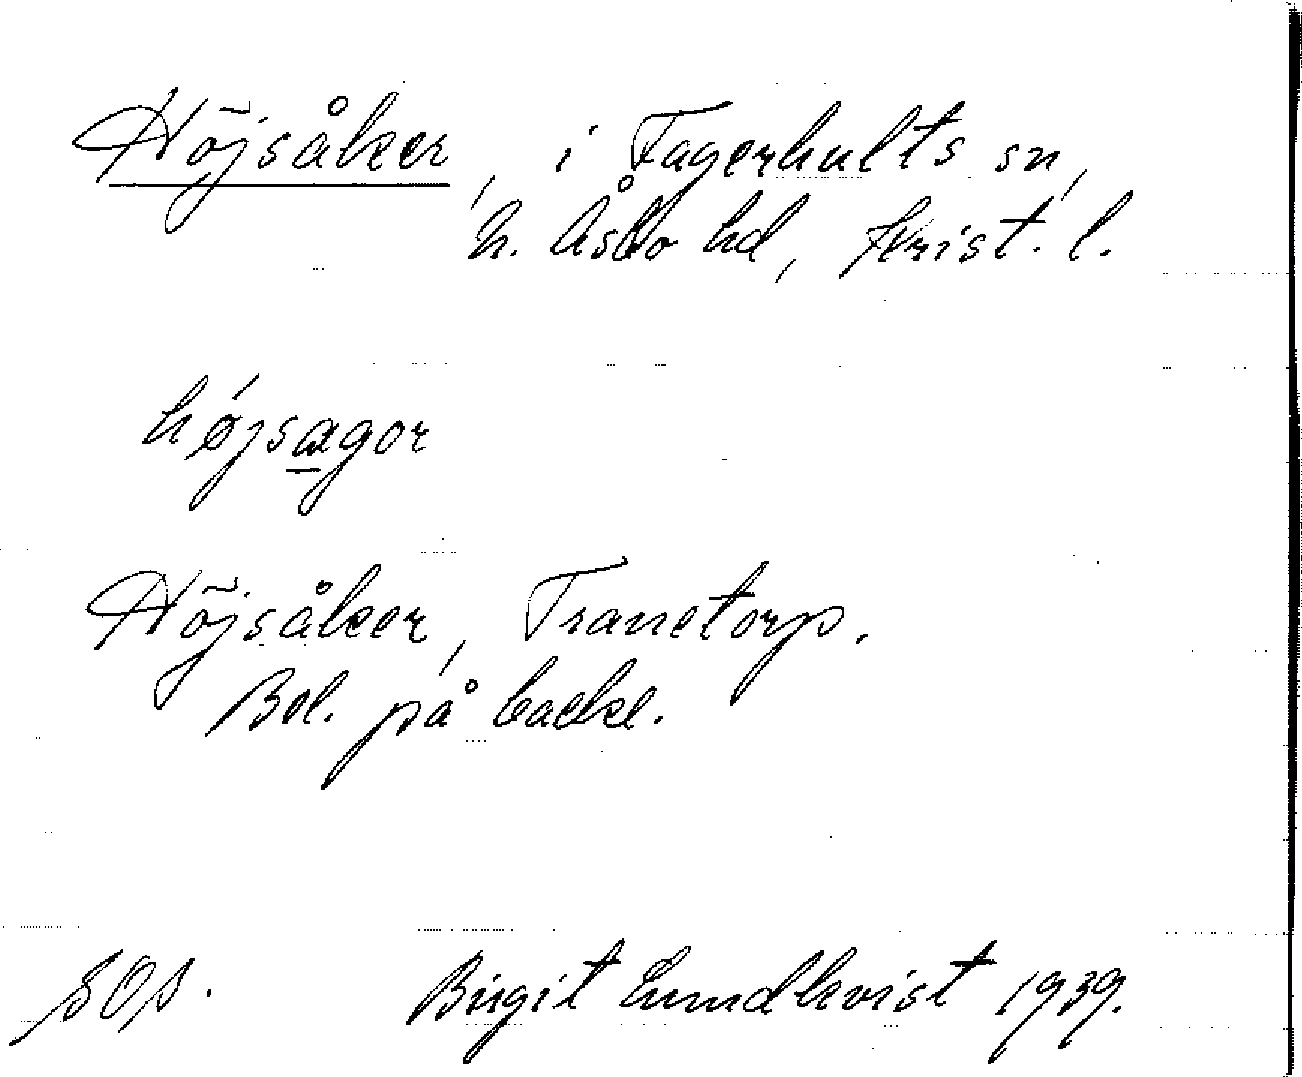 Höjsåker, i Fagerhults sn,
N. Åsbo hd, Krist. l.
hǿjsagor
Höjsåker, Tranetorp.
Bel. på backe.
SOp. Birgit Lundkvist 1939.